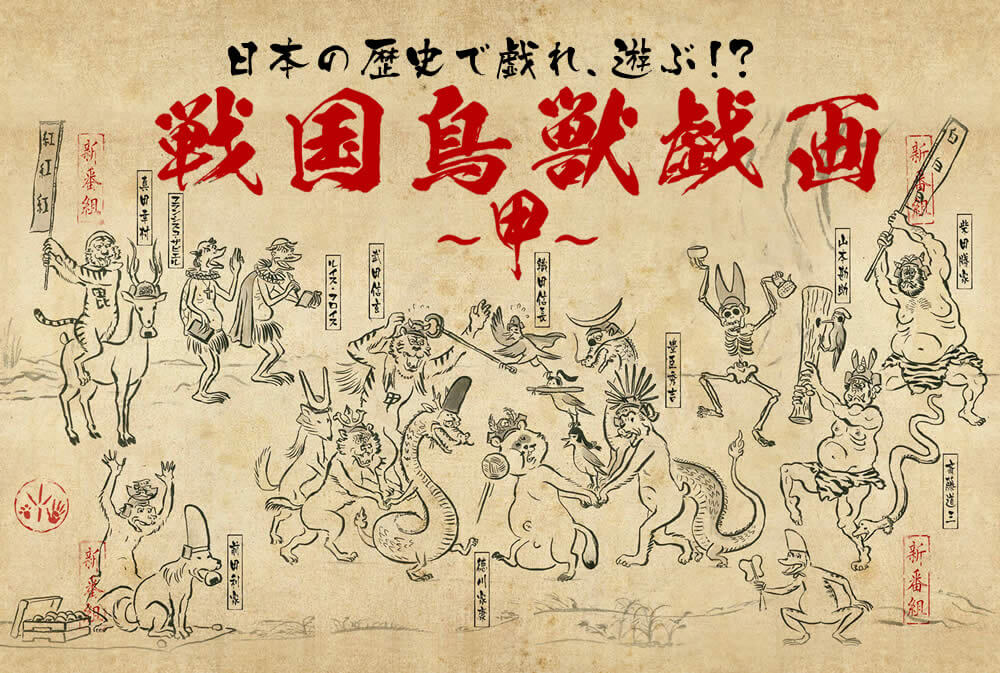 日本の歴史で戯れ、遊ぶ!?
戦国鳥獣戯画
〜甲〜
紅紅紅
新番組
真田幸村
フランシスコ・ザビエル
ルイス・フロイス
武田信玄
織田信長
豊臣秀吉
山本勘助
新番組
柴田勝家
毘
斎藤道三
新番組
前田利家
徳川家康
新番組